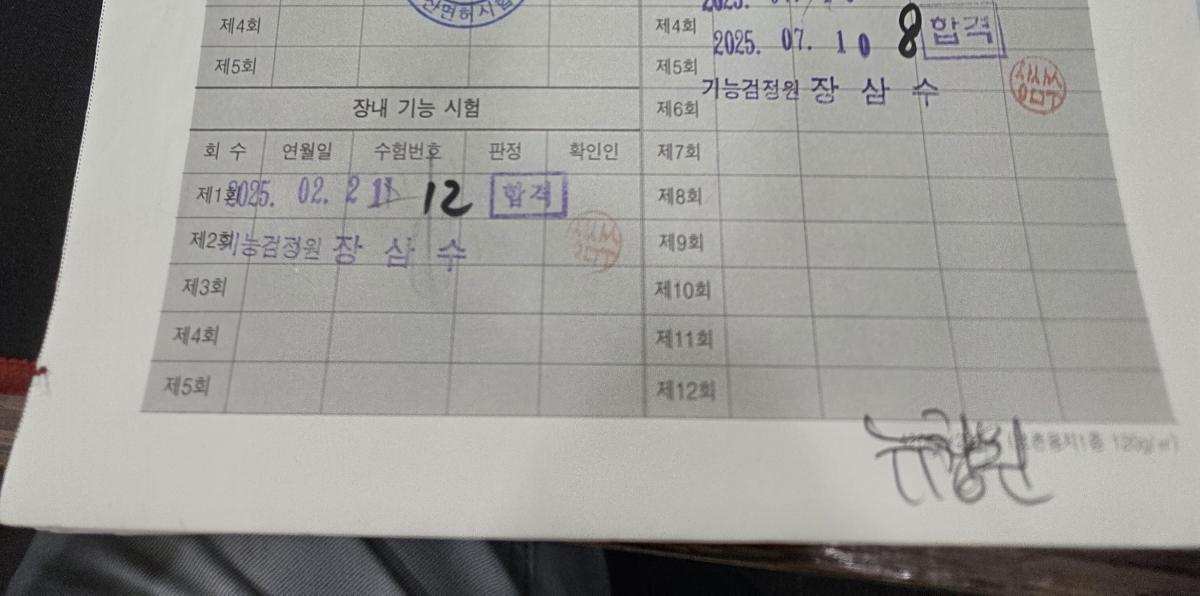 산면허시험
제4회
제5회
장내 기능 시험
회 수 연월일 수험번호 판정 확인인
제1회 2025. 02. 21 12 합격
제2회 기능검정원 장 삼 수
제3회
제4회
제5회
제4회 2025. 07. 10 8 합격
제5회
제6회 기능검정원 장 삼 수
제7회
제8회
제9회
제10회
제11회
제12회
120g/㎡)